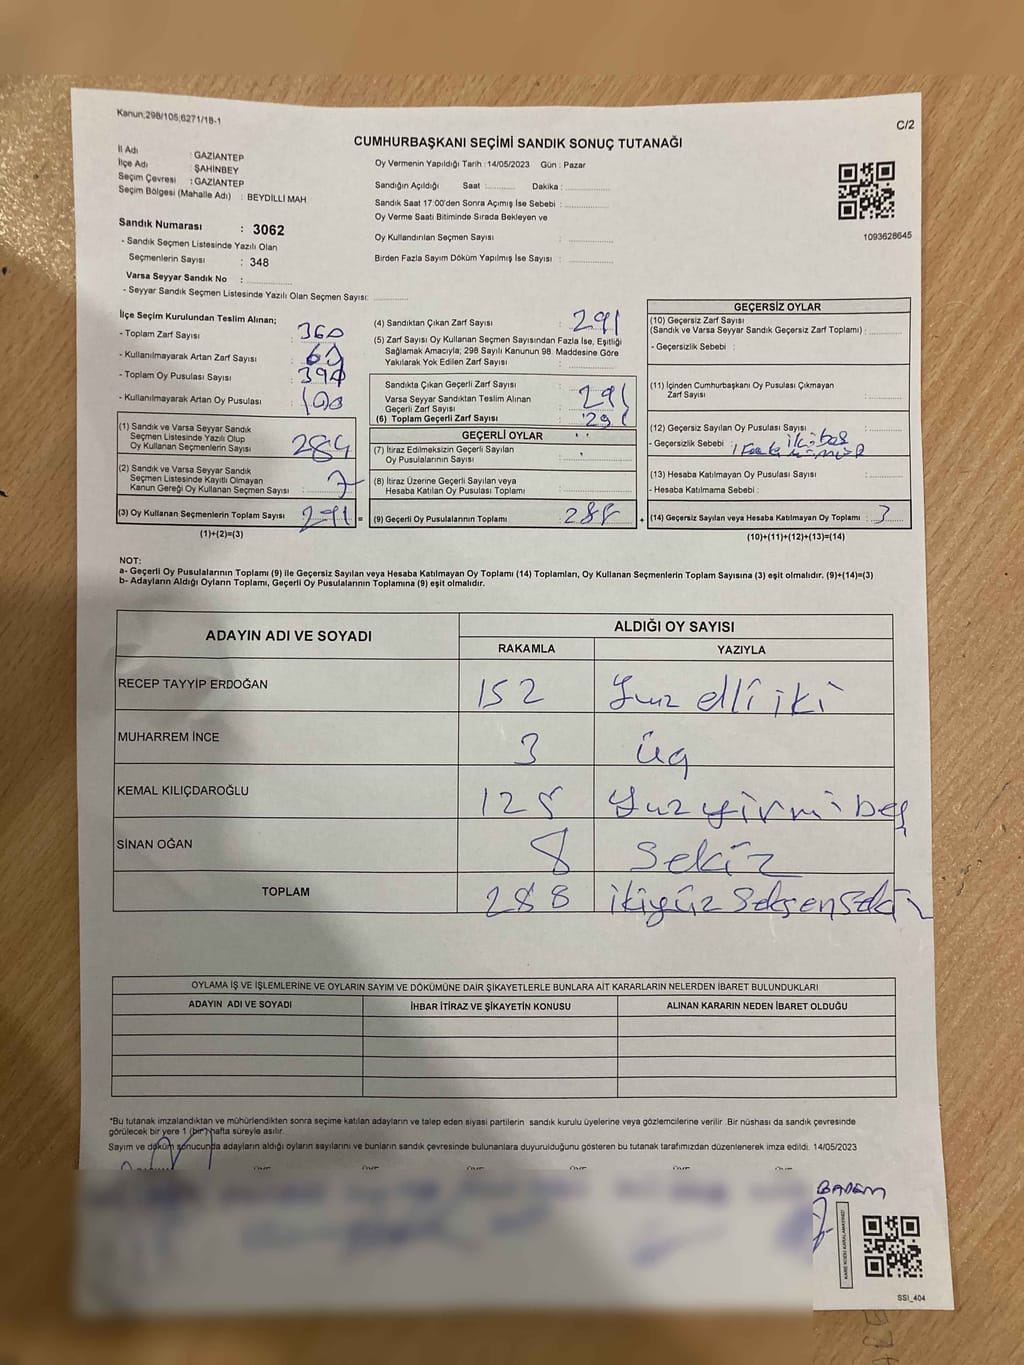 Kanun;298/105;6271/18-1
C/2
CUMHURBAŞKANI SEÇİMİ SANDIK SONUÇ TUTANAĞI
İl Adı : GAZİANTEP
İlçe Adı : ŞAHİNBEY
Seçim Çevresi : GAZİANTEP
Seçim Bölgesi (Mahalle Adı) : BEYDİLLİ MAH.
Oy Vermenin Yapıldığı Tarih : 14/05/2023 Gün : Pazar
Sandığın Açıldığı Saat :.......... Dakika :..........
Sandık Saat 17:00'den Sonra Açılmış İse Sebebi :..........
Oy Verme Saati Bitiminde Sırada Bekleyen ve
Oy Kullandırılan Seçmen Sayısı :..........
Birden Fazla Sayım Döküm Yapılmış İse Sayısı :..........
1093628645
Sandık Numarası : 3062
- Sandık Seçmen Listesinde Yazılı Olan
Seçmenlerin Sayısı : 348
Varsa Seyyar Sandık No :..........
- Seyyar Sandık Seçmen Listesinde Yazılı Olan Seçmen Sayısı:..........
İlçe Seçim Kurulundan Teslim Alınan;
- Toplam Zarf Sayısı : 360
- Kullanılmayarak Artan Zarf Sayısı :
- Toplam Oy Pusulası Sayısı :
- Kullanılmayarak Artan Oy Pusulası : 100
(1) Sandık ve Varsa Seyyar Sandık
Seçmen Listesinde Yazılı Olup
Oy Kullanan Seçmenlerin Sayısı : 284
(2) Sandık ve Varsa Seyyar Sandık
Seçmen Listesinde Kayıtlı Olmayan
Kanun Gereği Oy Kullanan Seçmen Sayısı : 7
(3) Oy Kullanan Seçmenlerin Toplam Sayısı : 291
(1)+(2)=(3)
(4) Sandıktan Çıkan Zarf Sayısı : 291
(5) Zarf Sayısı Oy Kullanan Seçmen Sayısından Fazla İse, Eşitliği
Sağlamak Amacıyla; 298 Sayılı Kanunun 98. Maddesine Göre
Yakılarak Yok Edilen Zarf Sayısı :..........
Sandıkta Çıkan Geçerli Zarf Sayısı : 291
Varsa Seyyar Sandıktan Teslim Alınan
Geçerli Zarf Sayısı :..........
(6) Toplam Geçerli Zarf Sayısı : 291
GEÇERLİ OYLAR
(7) İtiraz Edilmeksizin Geçerli Sayılan
Oy Pusulalarının Sayısı :..........
(8) İtiraz Üzerine Geçerli Sayılan veya
Hesaba Katılan Oy Pusulası Toplamı :..........
= (9) Geçerli Oy Pusulalarının Toplamı : 288
GEÇERSİZ OYLAR
(10) Geçersiz Zarf Sayısı
(Sandık ve Varsa Seyyar Sandık Geçersiz Zarf Toplamı) :..........
- Geçersizlik Sebebi :
(11) İçinden Cumhurbaşkanı Oy Pusulası Çıkmayan
Zarf Sayısı :..........
(12) Geçersiz Sayılan Oy Pusulası Sayısı :..........
- Geçersizlik Sebebi : iki boş
(13) Hesaba Katılmayan Oy Pusulası Sayısı :..........
- Hesaba Katılmama Sebebi :
+ (14) Geçersiz Sayılan veya Hesaba Katılmayan Oy Toplamı : 3
(10)+(11)+(12)+(13)=(14)
NOT:
a- Geçerli Oy Pusulalarının Toplamı (9) ile Geçersiz Sayılan veya Hesaba Katılmayan Oy Toplamı (14) Toplamları, Oy Kullanan Seçmenlerin Toplam Sayısına (3) eşit olmalıdır. (9)+(14)=(3)
b- Adayların Aldığı Oyların Toplamı, Geçerli Oy Pusulalarının Toplamına (9) eşit olmalıdır.
ADAYIN ADI VE SOYADI
ALDIĞI OY SAYISI
RAKAMLA YAZIYLA
RECEP TAYYİP ERDOĞAN 152 Yuz elli iki
MUHARREM İNCE 3 üç
KEMAL KILIÇDAROĞLU 125 Yuz yirmi beş
SİNAN OĞAN 8 Sekiz
TOPLAM 288 ikiyüz seksen sekiz
OYLAMA İŞ VE İŞLEMLERİNE VE OYLARIN SAYIM VE DÖKÜMÜNE DAİR ŞİKAYETLERLE BUNLARA AİT KARARLARIN NELERDEN İBARET BULUNDUKLARI
ADAYIN ADI VE SOYADI İHBAR İTİRAZ VE ŞİKAYETİN KONUSU ALINAN KARARIN NEDEN İBARET OLDUĞU
*Bu tutanak imzalandıktan ve mühürlendikten sonra seçime katılan adayların ve talep eden siyasi partilerin sandık kurulu üyelerine veya gözlemcilerine verilir. Bir nüshası da sandık çevresinde
görülecek bir yere 1 (bir) hafta süreyle asılır.
Sayım ve döküm sonucunda adayların aldığı oyların sayılarını ve bunların sandık çevresinde bulunanlara duyurulduğunu gösteren bu tutanak tarafımızdan düzenlenerek imza edildi. 14/05/2023
BADEM
SSI_404